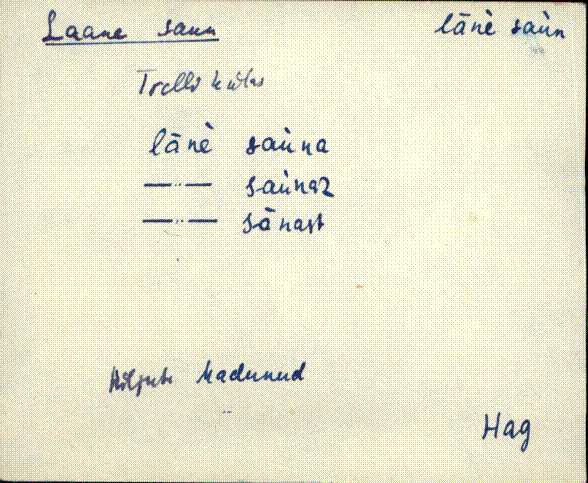 Laane saun lānè saùn
Trelli külas
lānè saùna
—"— saùnaz
—"— sānast
Hiljuti kadunud
Hag